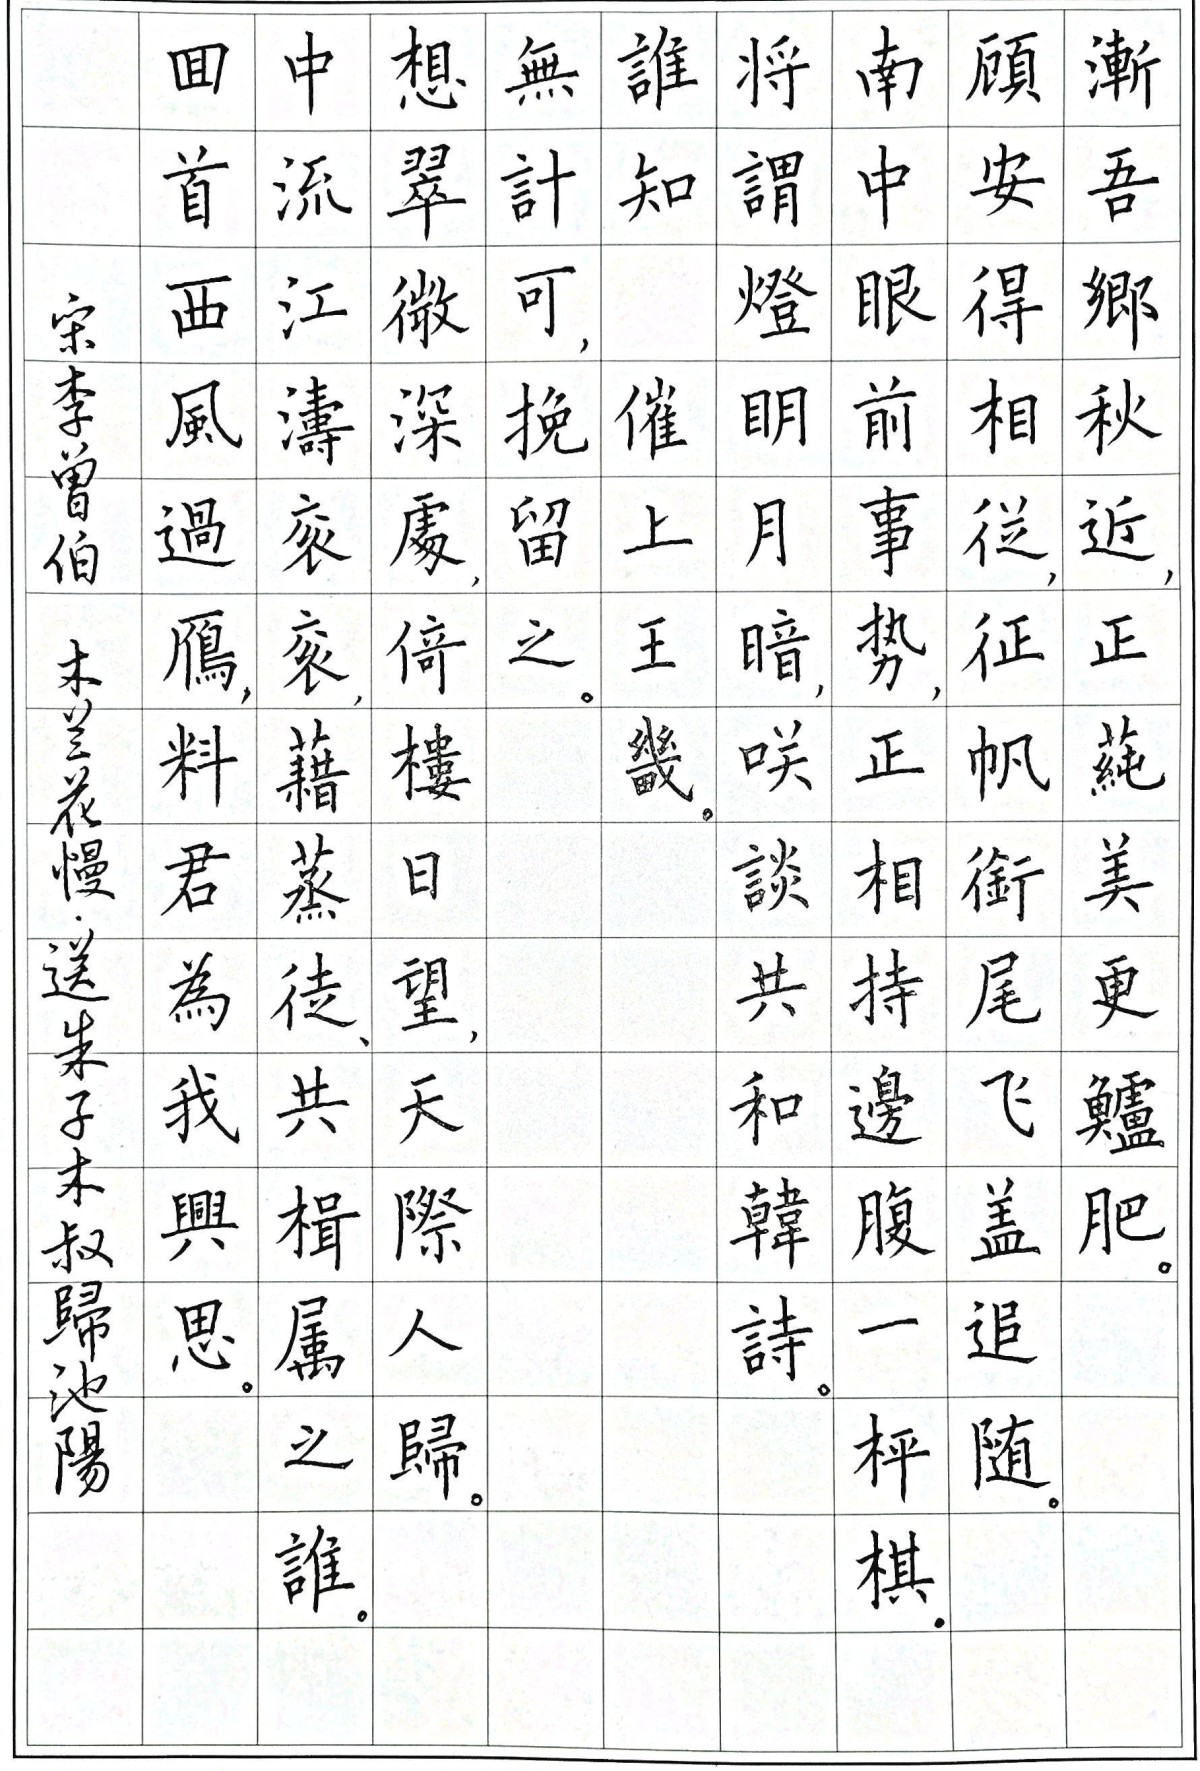 漸吾鄉秋近，正蒓美更鱸肥。
顧安得相從，征帆銜尾飞盖追随。
南中眼前事势，正相持邊腹一枰棋。
将謂燈明月暗，咲談共和韓詩。
誰知 催上王畿。
無計可，挽留之。
想翠微深處，倚樓日望，天際人歸。
中流江濤衮衮，藉蒸徒、共楫属之誰。
回首西風過鴈，料君為我興思。
宋李曾伯 木兰花慢·送朱子木叔歸池陽